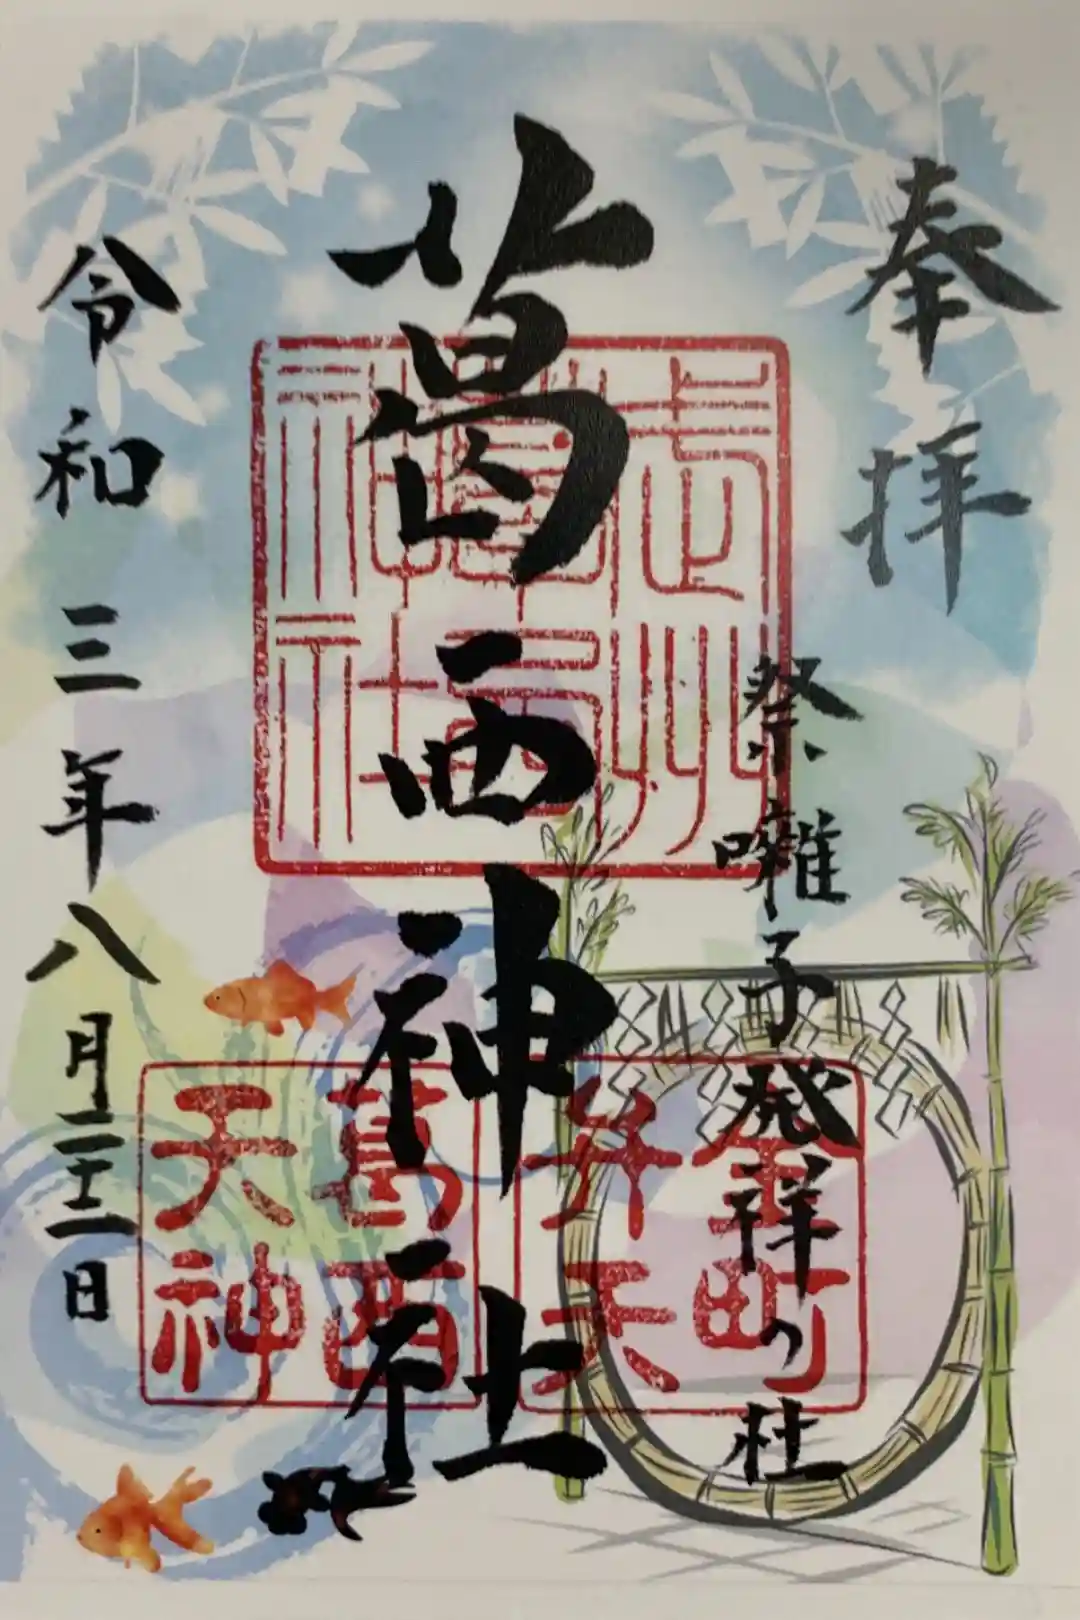 奉拝
祭囃子発祥の杜
葛西神社
令和三年八月二十二日
武州
葛西
神社
金町
弁天
葛西
天神